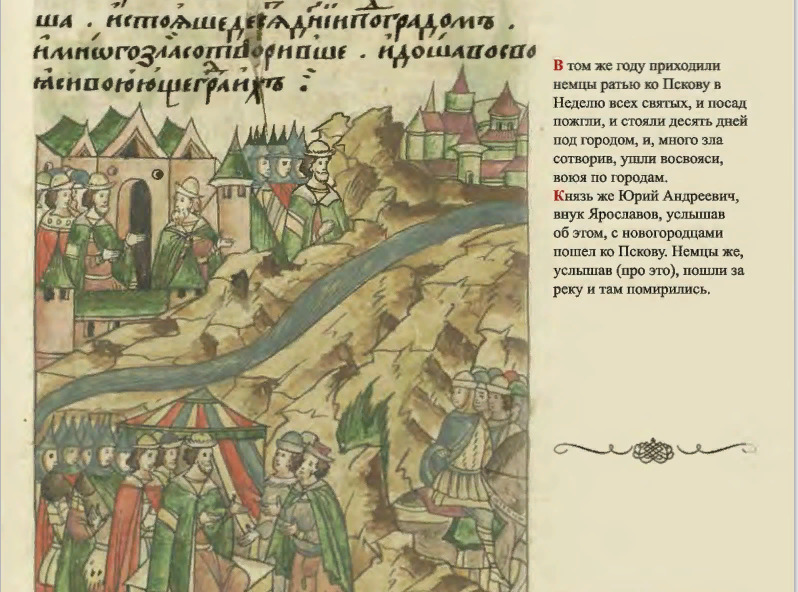 ша . истоꙗшедесѧдн҃ійпоградомъ .
имнѡгозласотворивше . идошавосво
ꙗсивоююшегра
В том же году приходили
немцы ратью ко Пскову в
Неделю всех святых, и посад
пожгли, и стояли десять дней
под городом, и, много зла
сотворив, ушли восвояси,
воюя по городам.
Князь же Юрий Андреевич,
внук Ярославов, услышав
об этом, с новогородцами
пошел ко Пскову. Немцы же,
услышав (про это), пошли за
реку и там помирились.